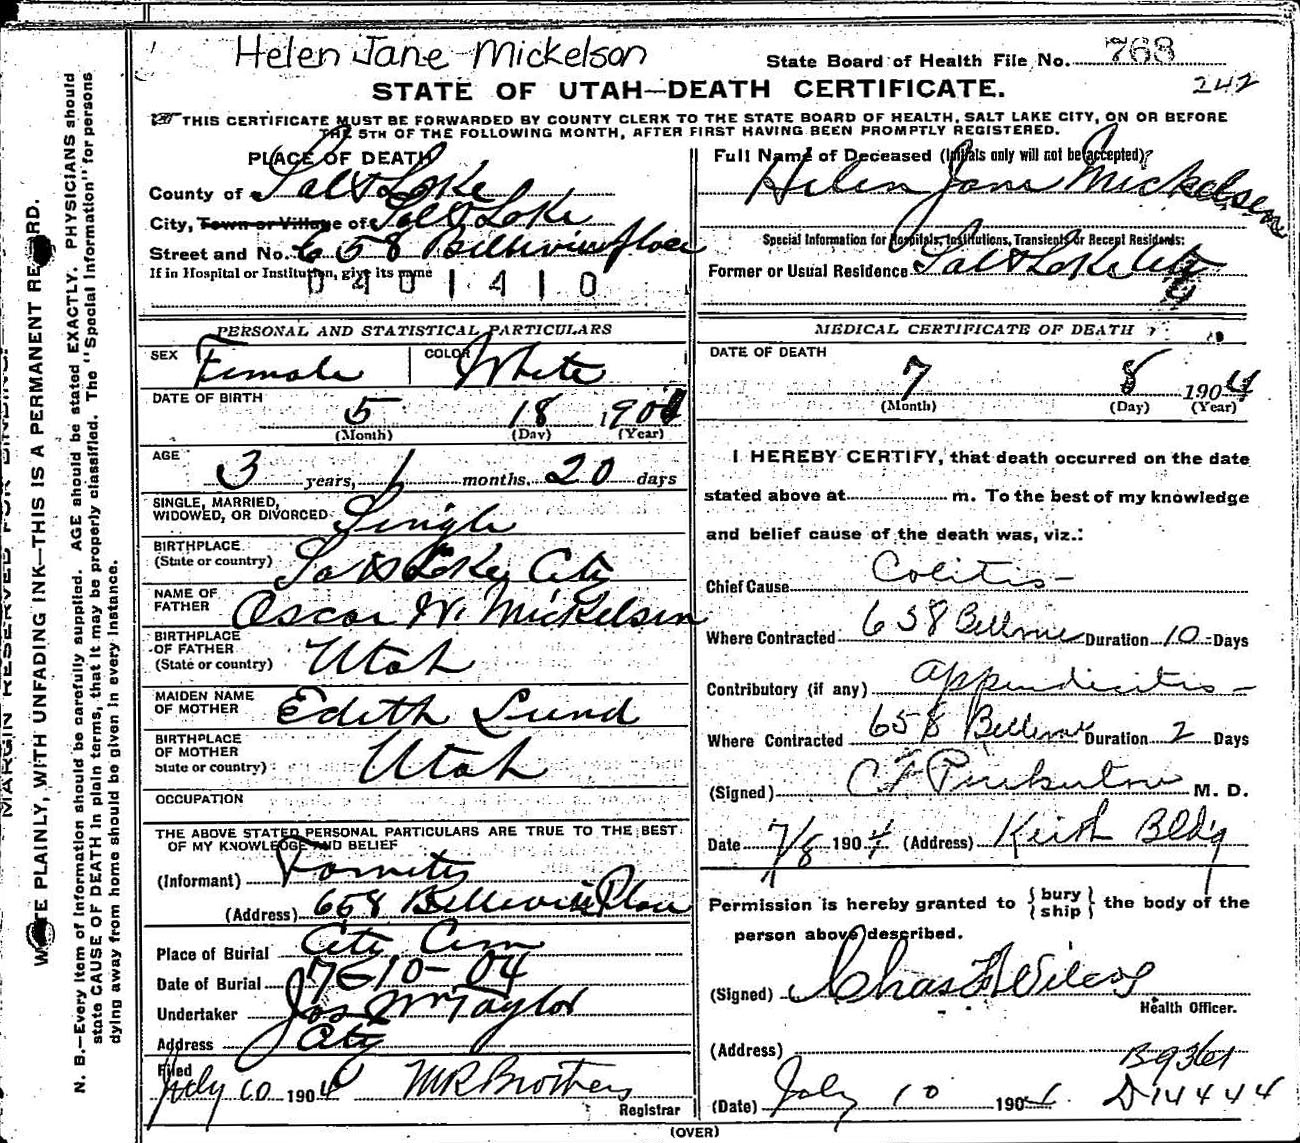 Helen Jane Mickelson
State Board of Health File No. 768
242
STATE OF UTAH—DEATH CERTIFICATE.
THIS CERTIFICATE MUST BE FORWARDED BY COUNTY CLERK TO THE STATE BOARD OF HEALTH, SALT LAKE CITY, ON OR BEFORE
THE 5TH OF THE FOLLOWING MONTH, AFTER FIRST HAVING BEEN PROMPTLY REGISTERED.
MARGIN RESERVED FOR BINDING.
WRITE PLAINLY, WITH UNFADING INK—THIS IS A PERMANENT RECORD.
N. B.—Every item of information should be carefully supplied. AGE should be stated EXACTLY. PHYSICIANS should
state CAUSE OF DEATH in plain terms, that it may be properly classified. The "Special Information" for persons
dying away from home should be given in every instance.
PLACE OF DEATH
County of Salt Lake
City, Town or Village of Salt Lake
Street and No. 658 Bellevue place
If in Hospital or Institution, give its name
0401410
PERSONAL AND STATISTICAL PARTICULARS
SEX Female COLOR White
DATE OF BIRTH
5 18 1901
(Month) (Day) (Year)
AGE
3 years, 1 months, 20 days
SINGLE, MARRIED,
WIDOWED, OR DIVORCED Single
BIRTHPLACE
(State or country) Salt Lake City
NAME OF
FATHER Oscar W. Mickelsen
BIRTHPLACE
OF FATHER
(State or country) Utah
MAIDEN NAME
OF MOTHER Edith Lund
BIRTHPLACE
OF MOTHER
State or country) Utah
OCCUPATION
THE ABOVE STATED PERSONAL PARTICULARS ARE TRUE TO THE BEST
OF MY KNOWLEDGE AND BELIEF
(Informant)
(Address) 658 Bellevue Place
Place of Burial City Cem
Date of Burial 7-10-04
Undertaker Jos Wm Taylor
Address City
Filed
July 10 1904 M R Brothers
Registrar
Full Name of Deceased (Initials only will not be accepted)
Helen Jane Mickelsen
Special Information for Hospitals, Institutions, Transients or Recent Residents:
Former or Usual Residence Salt Lake City
MEDICAL CERTIFICATE OF DEATH
DATE OF DEATH
7 8 1904
(Month) (Day) (Year)
I HEREBY CERTIFY, that death occurred on the date
stated above at m. To the best of my knowledge
and belief cause of the death was, viz.:
Chief Cause Colitis
Where Contracted 658 Bellevue Duration 10 Days
Contributory (if any) appendicitis
Where Contracted 658 Bellevue Duration 2 Days
(Signed) C F Pinkerton M. D.
Date 7/8 1904 (Address) Keith Bldg
Permission is hereby granted to {bury ship} the body of the
person above described.
(Signed) Chas F Wilcox
Health Officer.
(Address)
B9361
(Date) July 10 1904 D14444
(OVER)